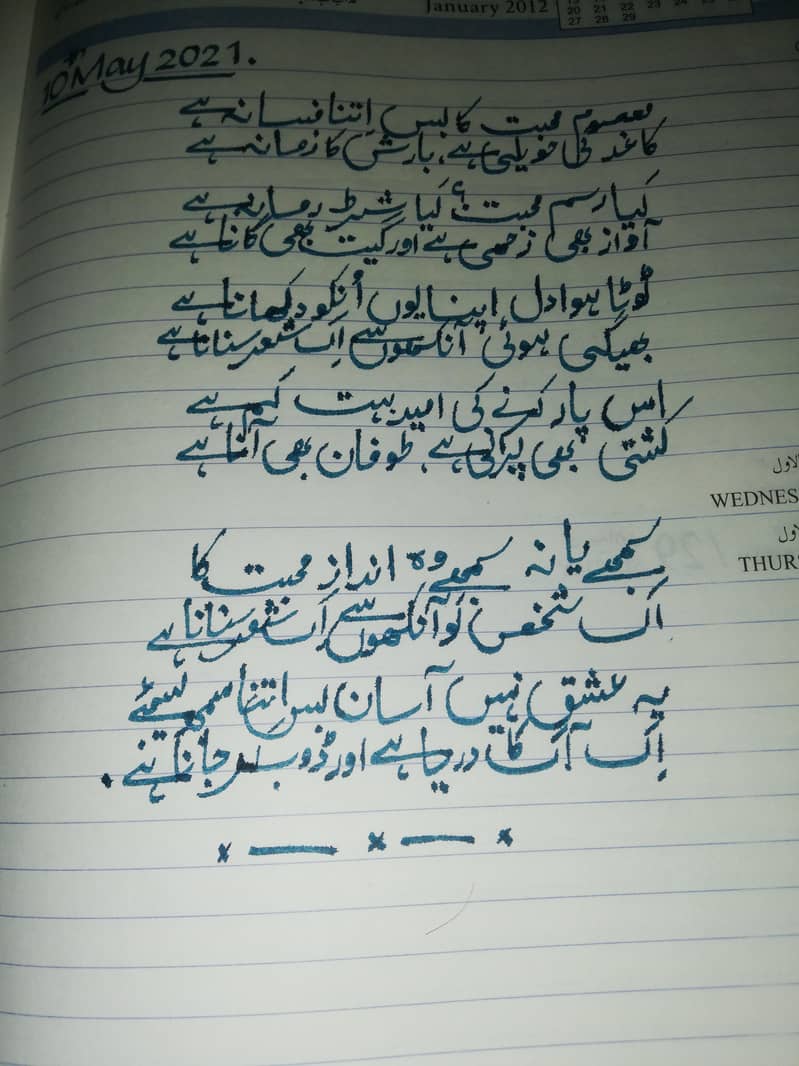 January 2012
20 21 22 23 24 25
27 28 29
10th May 2021.
معصوم محبت کا بس اِتنا فسانہ ہے
کاغذ کی حویلی ہے، بارش کا زمانہ ہے
کیا رسمِ محبت ہے کیا شرطِ زمانہ ہے
آواز بھی زخمی ہے اور گیت بھی گانا ہے
ٹوٹا ہوا دل اپنا یوں اُنکو دکھانا ہے
بھیگی ہوئی آنکھوں سے اِک شعر سنانا ہے
اس پار کرنے کی امید بہت کم ہے
کشتی بھی پرانی ہے، طوفان بھی آنا ہے
سمجھے یا نہ سمجھے وہ انداز محبت کا
اِک شخص کو آنکھوں سے اِک شعر سنانا ہے
یہ عشق نہیں آسان بس اِتنا سمجھ لیجئے
اِک آگ کا دریا ہے اور ڈوب کر جانا ہے.
الاول
WEDNES
الاول
THUR